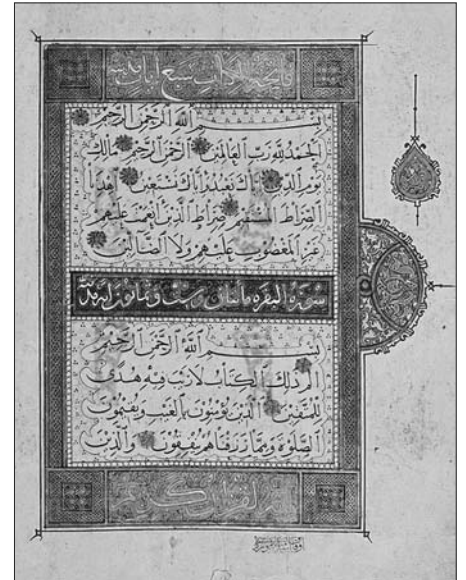 فاتحة الكتاب سبع ايات
بسم الله الرحمن الرحيم
الحمد لله رب العالمين الرحمن الرحيم مالك
يوم الدين اياك نعبد واياك نستعين اهدنا
الصراط المستقيم صراط الذين انعمت عليهم
غير المغضوب عليهم ولا الضالين
سورة البقره مائتان وست وثمانون اية مدنية
بسم الله الرحمن الرحيم
الم ذلك الكتاب لا ريب فيه هدى
للمتقين الذين يؤمنون بالغيب ويقيمون
الصلوة ومما رزقناهم ينفقون والذين
انه لقران كريم